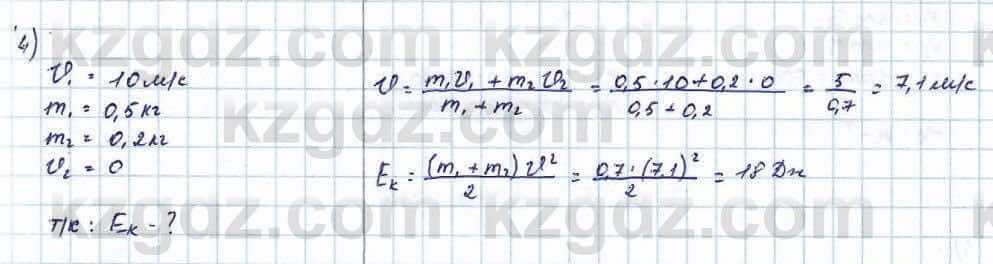 4)
υ₁ = 10 м/с
m₁ = 0,5 кг
m₂ = 0,2 кг
υ₂ = 0
т/к: Eₖ - ?
υ = (m₁υ₁ + m₂υ₂)/(m₁ + m₂) = (0,5 · 10 + 0,2 · 0)/(0,5 + 0,2) = 5/0,7 = 7,1 м/с
Eₖ = ((m₁ + m₂) υ²)/2 = (0,7 · (7,1)²)/2 = 18 Дж
kzgdz.com kzgdz.com
kzgdz.com
kzgdz.com kzgdz.com